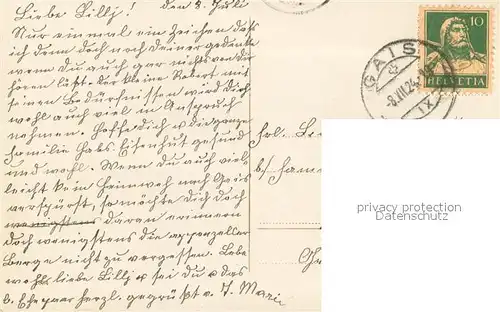 Liebe Lillj! den 8. Juli
Nur einmal ein Zeichen daß
ich denn doch noch deiner gedenke
wenn du auch gar nichts von dir
hören läßt. Der kleine Robert mit
seinen Bedürfnissen wird dich
wohl auch viel in Anspruch
nehmen. Hoffe dich u die ganze
Familie Habs. Eisenhut gesund
und wohl. Wenn du auch viel-
leicht kein Heimweh nach Gais
verspürst, so möchte dich doch
wenigstens daran erinnern
doch wenigstens die appenzeller
Berge nicht zu vergessen. Lebe
wohl liebe Lillj u sei du u das
b. Ehepaar herzl. gegrüßt v. J. Marie
10
HELVETIA
GAIS
8.VII.24
frl.
b/ fame
privacy protection
Datenschutz